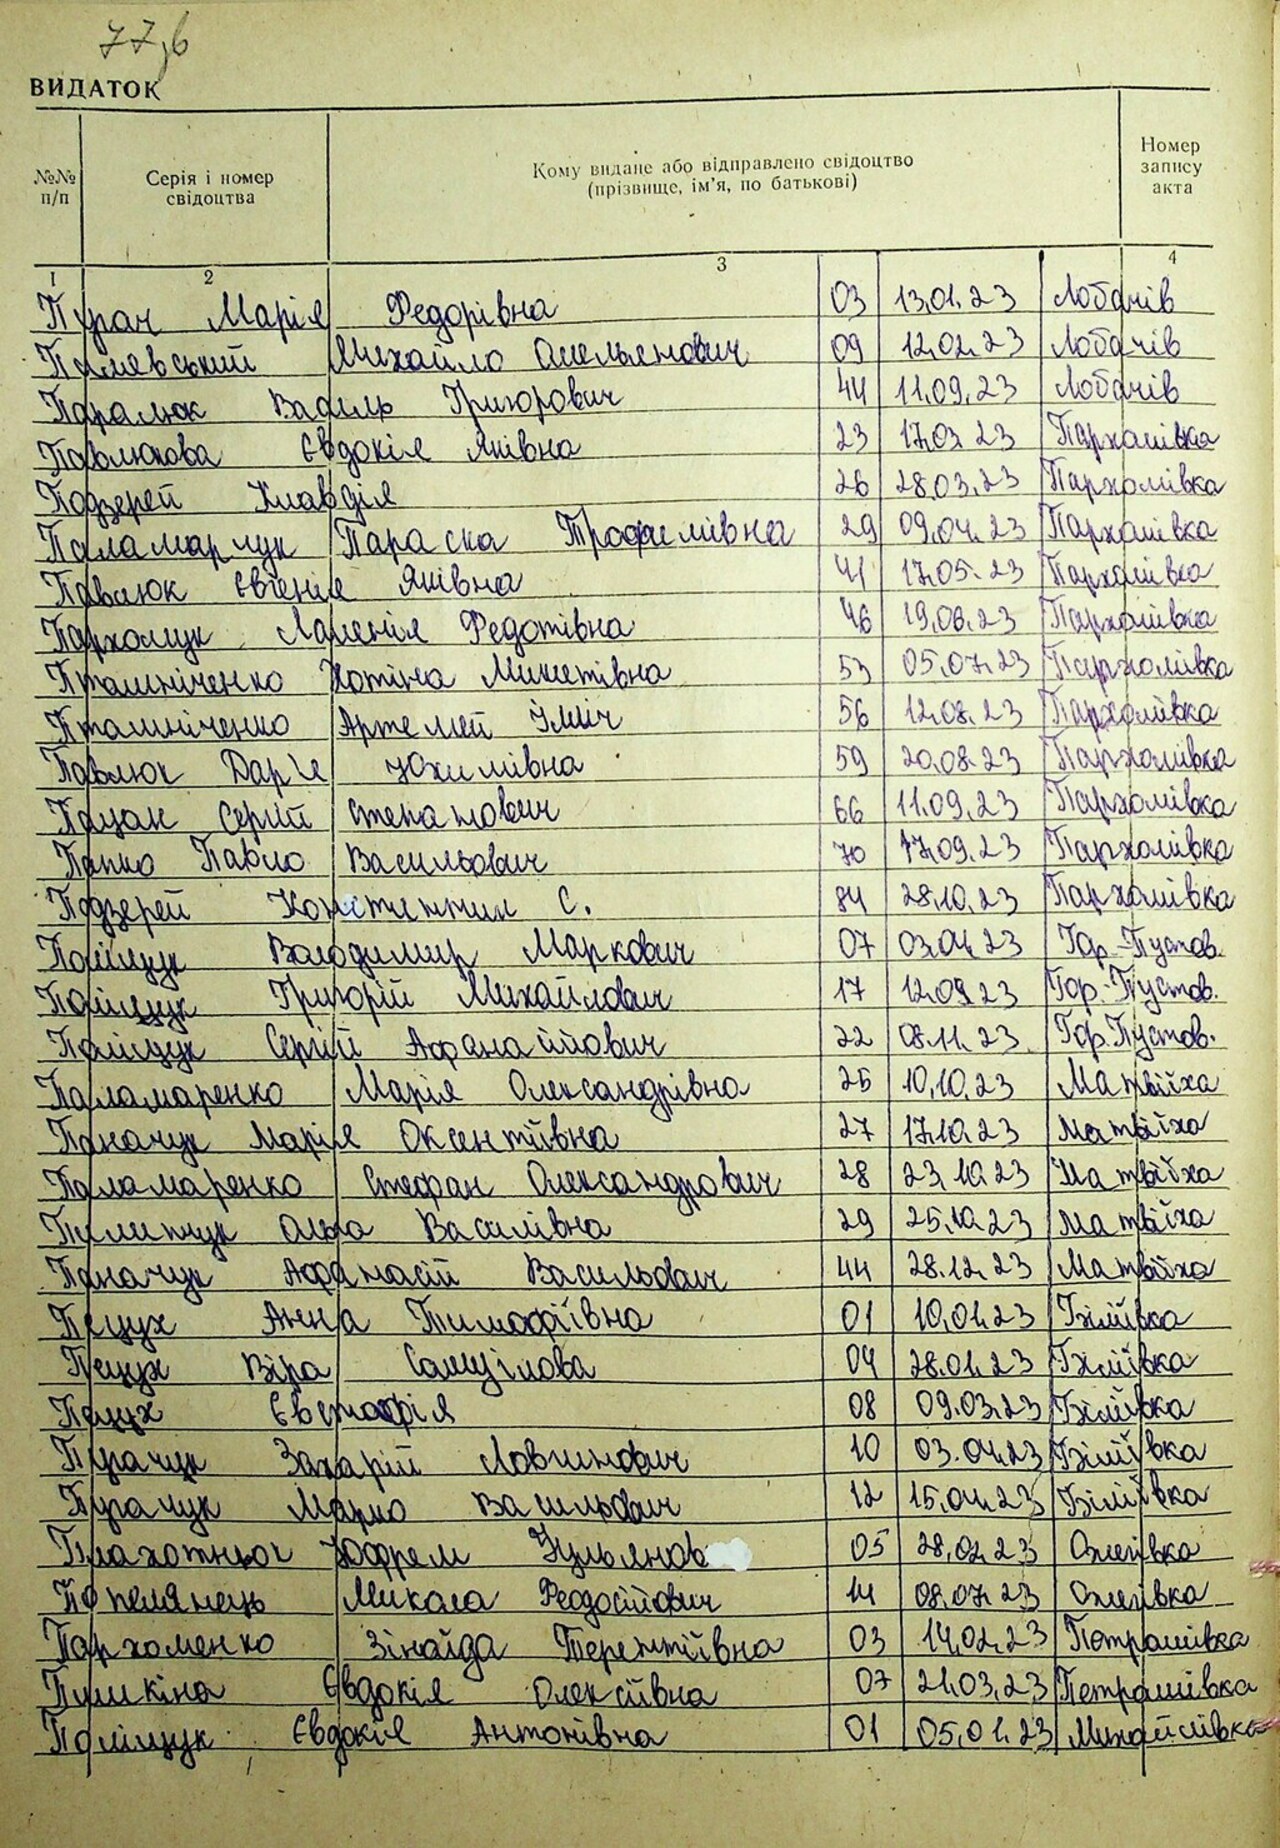 77,б
ВИДАТОК
№№ п/п
Серія і номер свідоцтва
Кому видане або відправлено свідоцтво (прізвище, ім'я, по батькові)
Номер запису акта
1 2 3 4
Пугач Марія Федорівна 03 13.01.23 Лобачів
Михайло Омелянович 09 12.02.23 Лобачів
Паралюк Василь Григорович 44 11.09.23 Лобачів
Павлюкова Євдокія Яківна 23 17.03.23 Пархомівка
Подзерей Клавдія 26 28.03.23 Пархомівка
Паламарчук Параска Трофимівна 29 09.04.23 Пархомівка
Павлюк Євгенія Яківна 41 17.05.23 Пархомівка
Пархомук Федотівна 46 19.06.23 Пархомівка
Пташніченко Хотіна Микитівна 53 05.07.23 Пархомівка
Пташніченко Артемей Ілліч 56 12.08.23 Пархомівка
Павлюк Дар'я Юхимівна 59 20.08.23 Пархомівка
Пацан Сергій Степанович 66 11.09.23 Пархомівка
Папко Павло Васильович 70 17.09.23 Пархомівка
Подзерей Констянтин С. 84 28.10.23 Пархомівка
Поліщук Володимир Маркович 07 03.04.23 Гор.-Пустов.
Поліщук Григорій Михайлович 17 12.09.23 Гор.-Пустов.
Поліщук Сергій Афанасійович 22 08.11.23 Гор.Пустов.
Паламаренко Марія Олександрівна 25 10.10.23 Матвіїха
Паначук Марія Оксентіївна 27 17.10.23 Матвіїха
Паламаренко Стефан Олександрович 28 23.10.23 Матвіїха
Пилипчук Ольга Василівна 29 25.10.23 Матвіїха
Паначук Афанасій Васильович 44 28.12.23 Матвіїха
Пецух Анна Тимофіївна 01 10.01.23 Біліївка
Пецух Віра Самуілова 04 28.01.23 Біліївка
Пецух Євстафія 08 09.03.23 Біліївка
Пугачук Захарій Логвинович 10 03.04.23 Біліївка
Пугачук Марко Васильович 12 15.04.23 Біліївка
Плахотнюк Юфрем Ульянов 05 28.02.23 Ожегівка
Попелянець Микола Феодосійович 14 08.07.23 Ожегівка
Пархоменко Зінаїда Терентіївна 03 14.02.23 Петрашівка
Пушкіна Євдокія Олексіївна 07 21.03.23 Петрашівка
Поліщук Євдокія Антонівна 01 05.01.23 Михайлівка